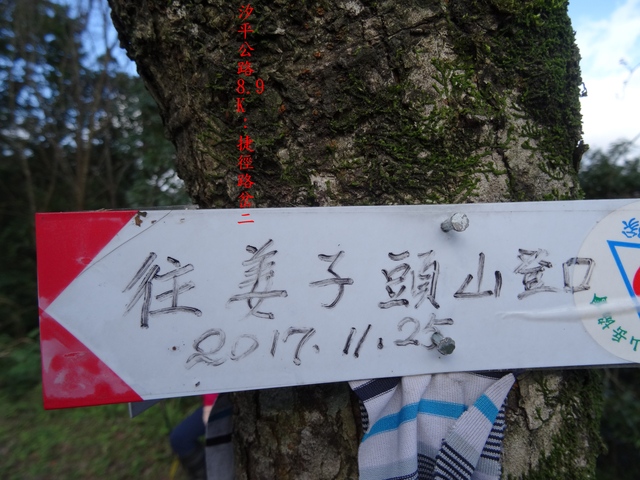 汐平公路9.8K:捷徑路岔二
往姜子頭山登口
2017.11.25